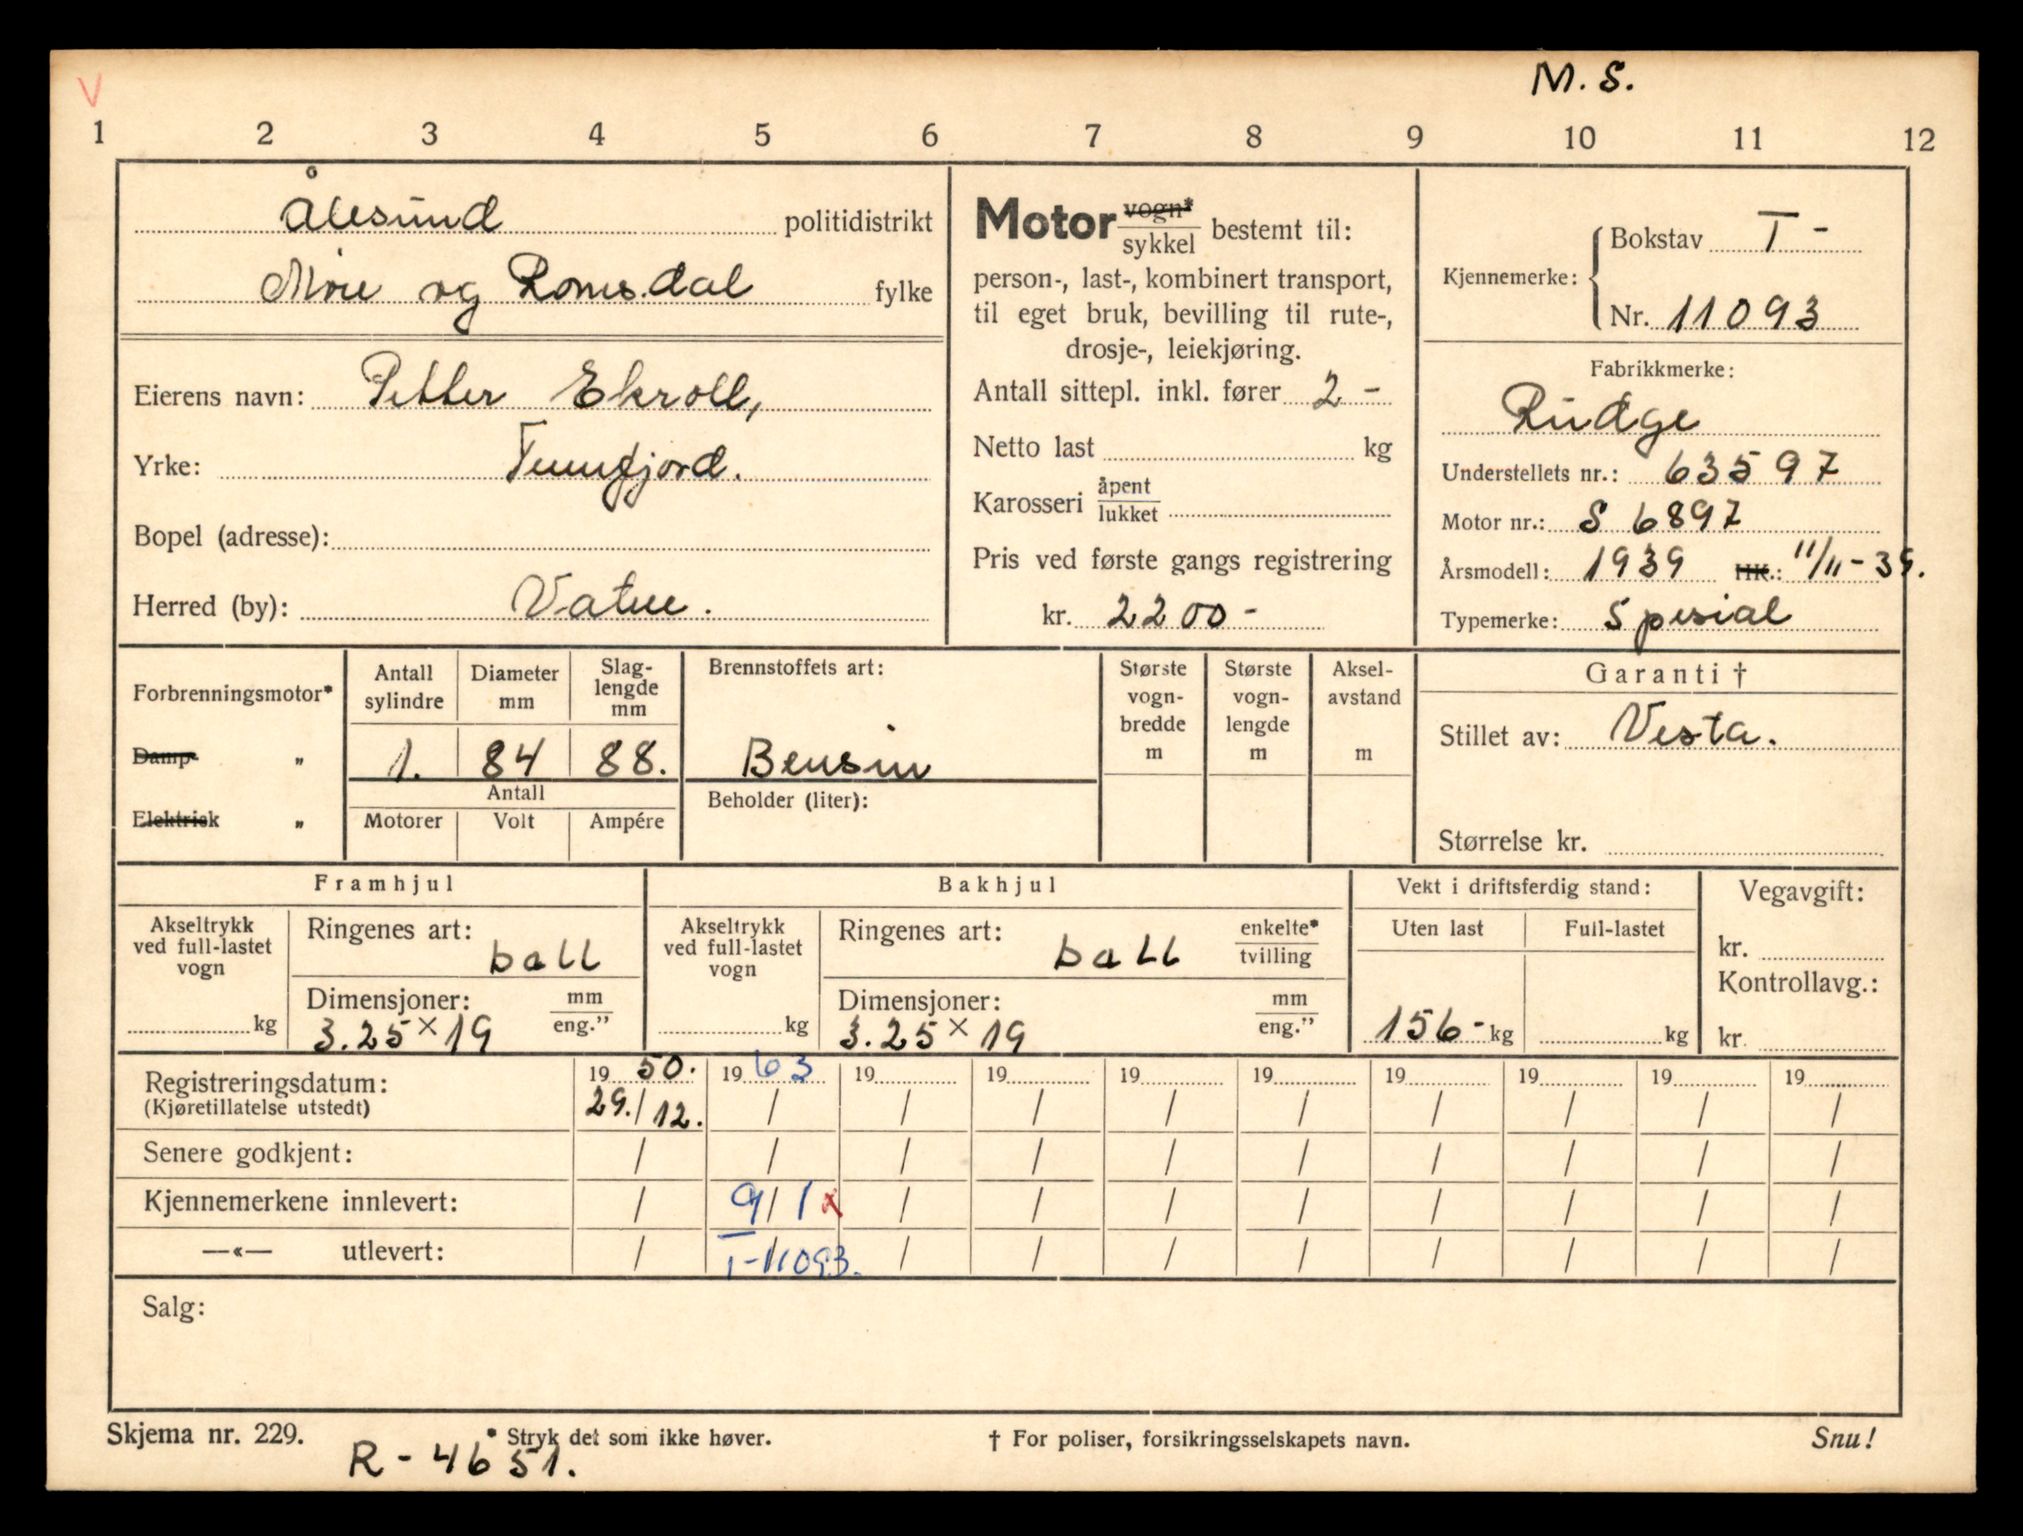 V
M. S.
1 2 3 4 5 6 7 8 9 10 11 12
Ålesund politidistrikt
Møre og Romsdal fylke
Eierens navn: Petter Ekroll,
Yrke: Tennfjord.
Bopel (adresse):
Herred (by): Vatne.
Motor vogn* sykkel bestemt til:
person-, last-, kombinert transport,
til eget bruk, bevilling til rute-,
drosje-, leiekjøring.
Antall sittepl. inkl. fører 2 -
Netto last kg
Karosseri åpent lukket
Pris ved første gangs registrering
kr. 2200 -
Kjennemerke:
Bokstav T -
Nr. 11093
Fabrikkmerke:
Rudge
Understellets nr.: 63597
Motor nr.: S 6897
Årsmodell: 1939 HK.: 11/11-39.
Typemerke: Spesial
Forbrenningsmotor*
Damp- „
Elektrisk „
Antall sylindre
Diameter mm
Slag-lengde mm
1. 84 88.
Antall
Motorer Volt Ampére
Brennstoffets art:
Bensin
Beholder (liter):
Største vogn-bredde m
Største vogn-lengde m
Aksel-avstand m
Garanti †
Stillet av: Vesta.
Størrelse kr.
Framhjul
Akseltrykk ved full-lastet vogn
kg
Ringenes art:
ball
Dimensjoner: mm eng.”
3.25 × 19
Bakhjul
Akseltrykk ved full-lastet vogn
kg
Ringenes art: enkelte* tvilling
ball
Dimensjoner: mm eng.”
3.25 × 19
Vekt i driftsferdig stand:
Uten last Full-lastet
156 - kg kg
Vegavgift:
kr.
Kontrollavg.:
kr.
Registreringsdatum: 19 50. 19 63 19 19 19 19 19 19 19 19
(Kjøretillatelse utstedt) 29./12. / / / / / / / / /
Senere godkjent: / / / / / / / / / /
Kjennemerkene innlevert: / 9/1 x / / / / / / / /
—«— utlevert: / T-11093. / / / / / / / /
Salg:
Skjema nr. 229.
* Stryk det som ikke høver.
† For poliser, forsikringsselskapets navn.
Snu!
R - 4651.